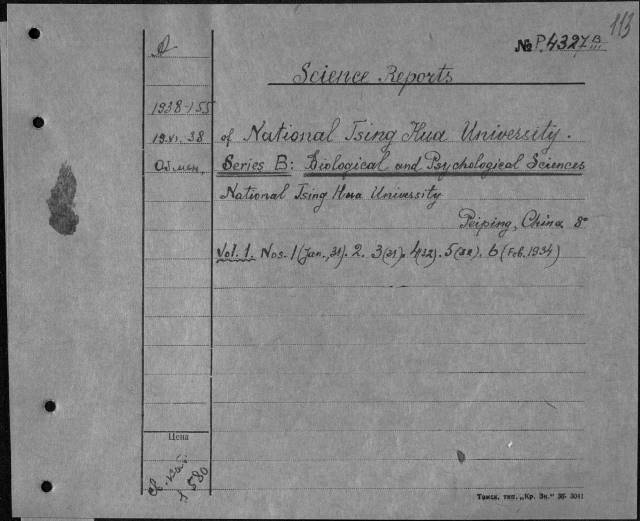 113
№ P.4327 B/III
Science Reports
1938-155
19.XI.38 of National Tsing Hua University.
Обмен. Series B: Biological and Psychological Sciences
National Tsing Hua University
Peiping, China 8°
Vol. 1. Nos. 1 (Jan., 31). 2. 3 (31). 4 (32). 5 (32). 6 (Feb. 1934)
Цена
580
Томск. тип. „Кр. Зн.“ 36- 3041